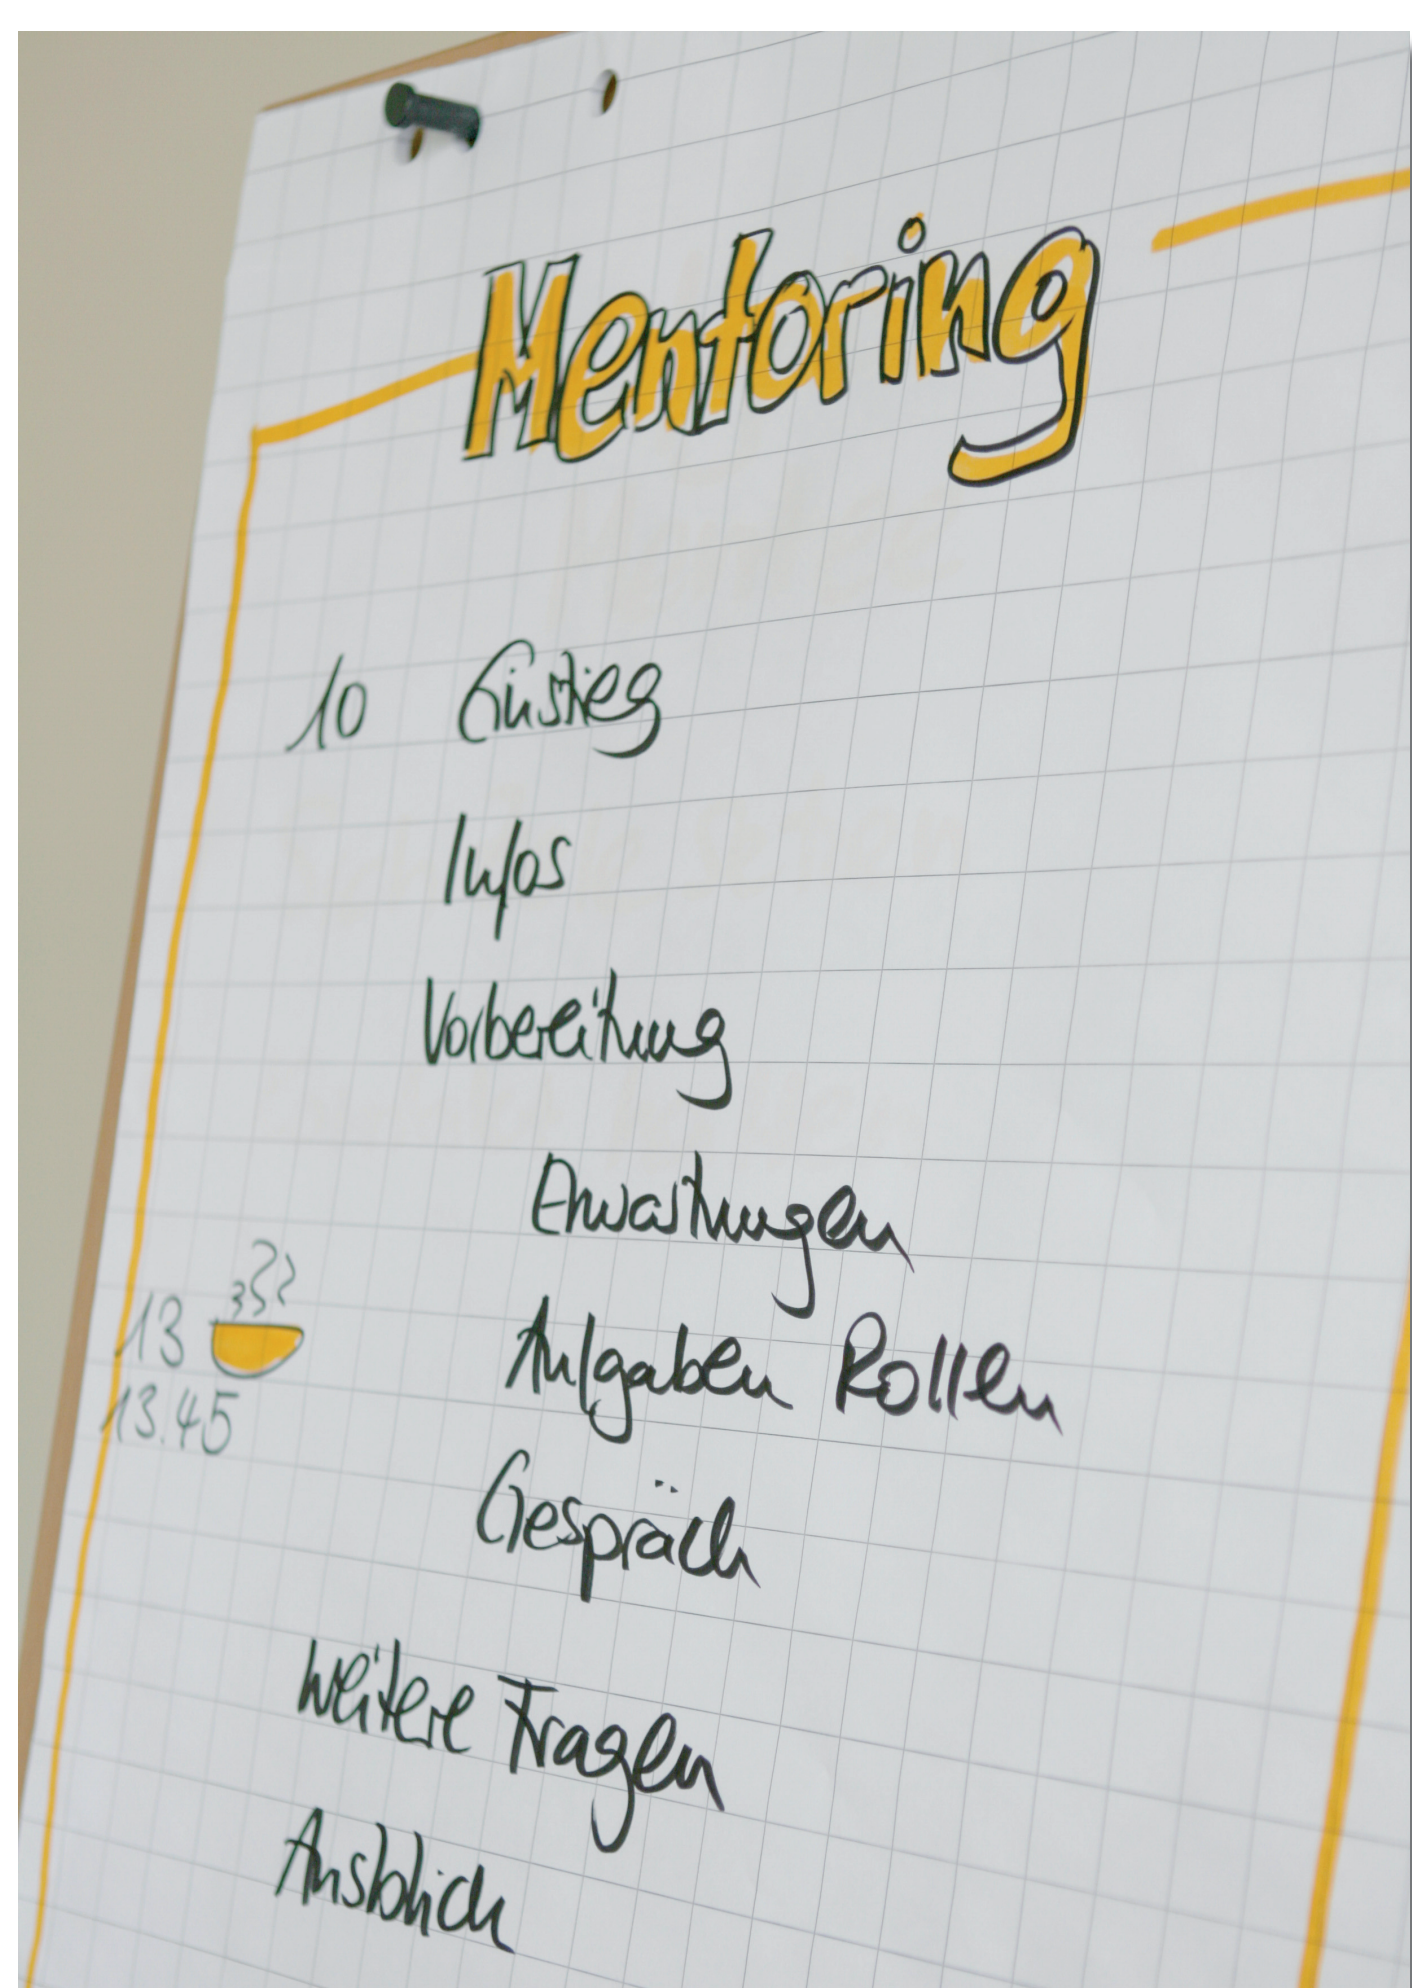 Mentoring
10 Einstieg
Infos
Vorbereitung
Erwartungen
13
Aufgaben Rollen
13.45
Gespräch
weitere Fragen
Ausblick